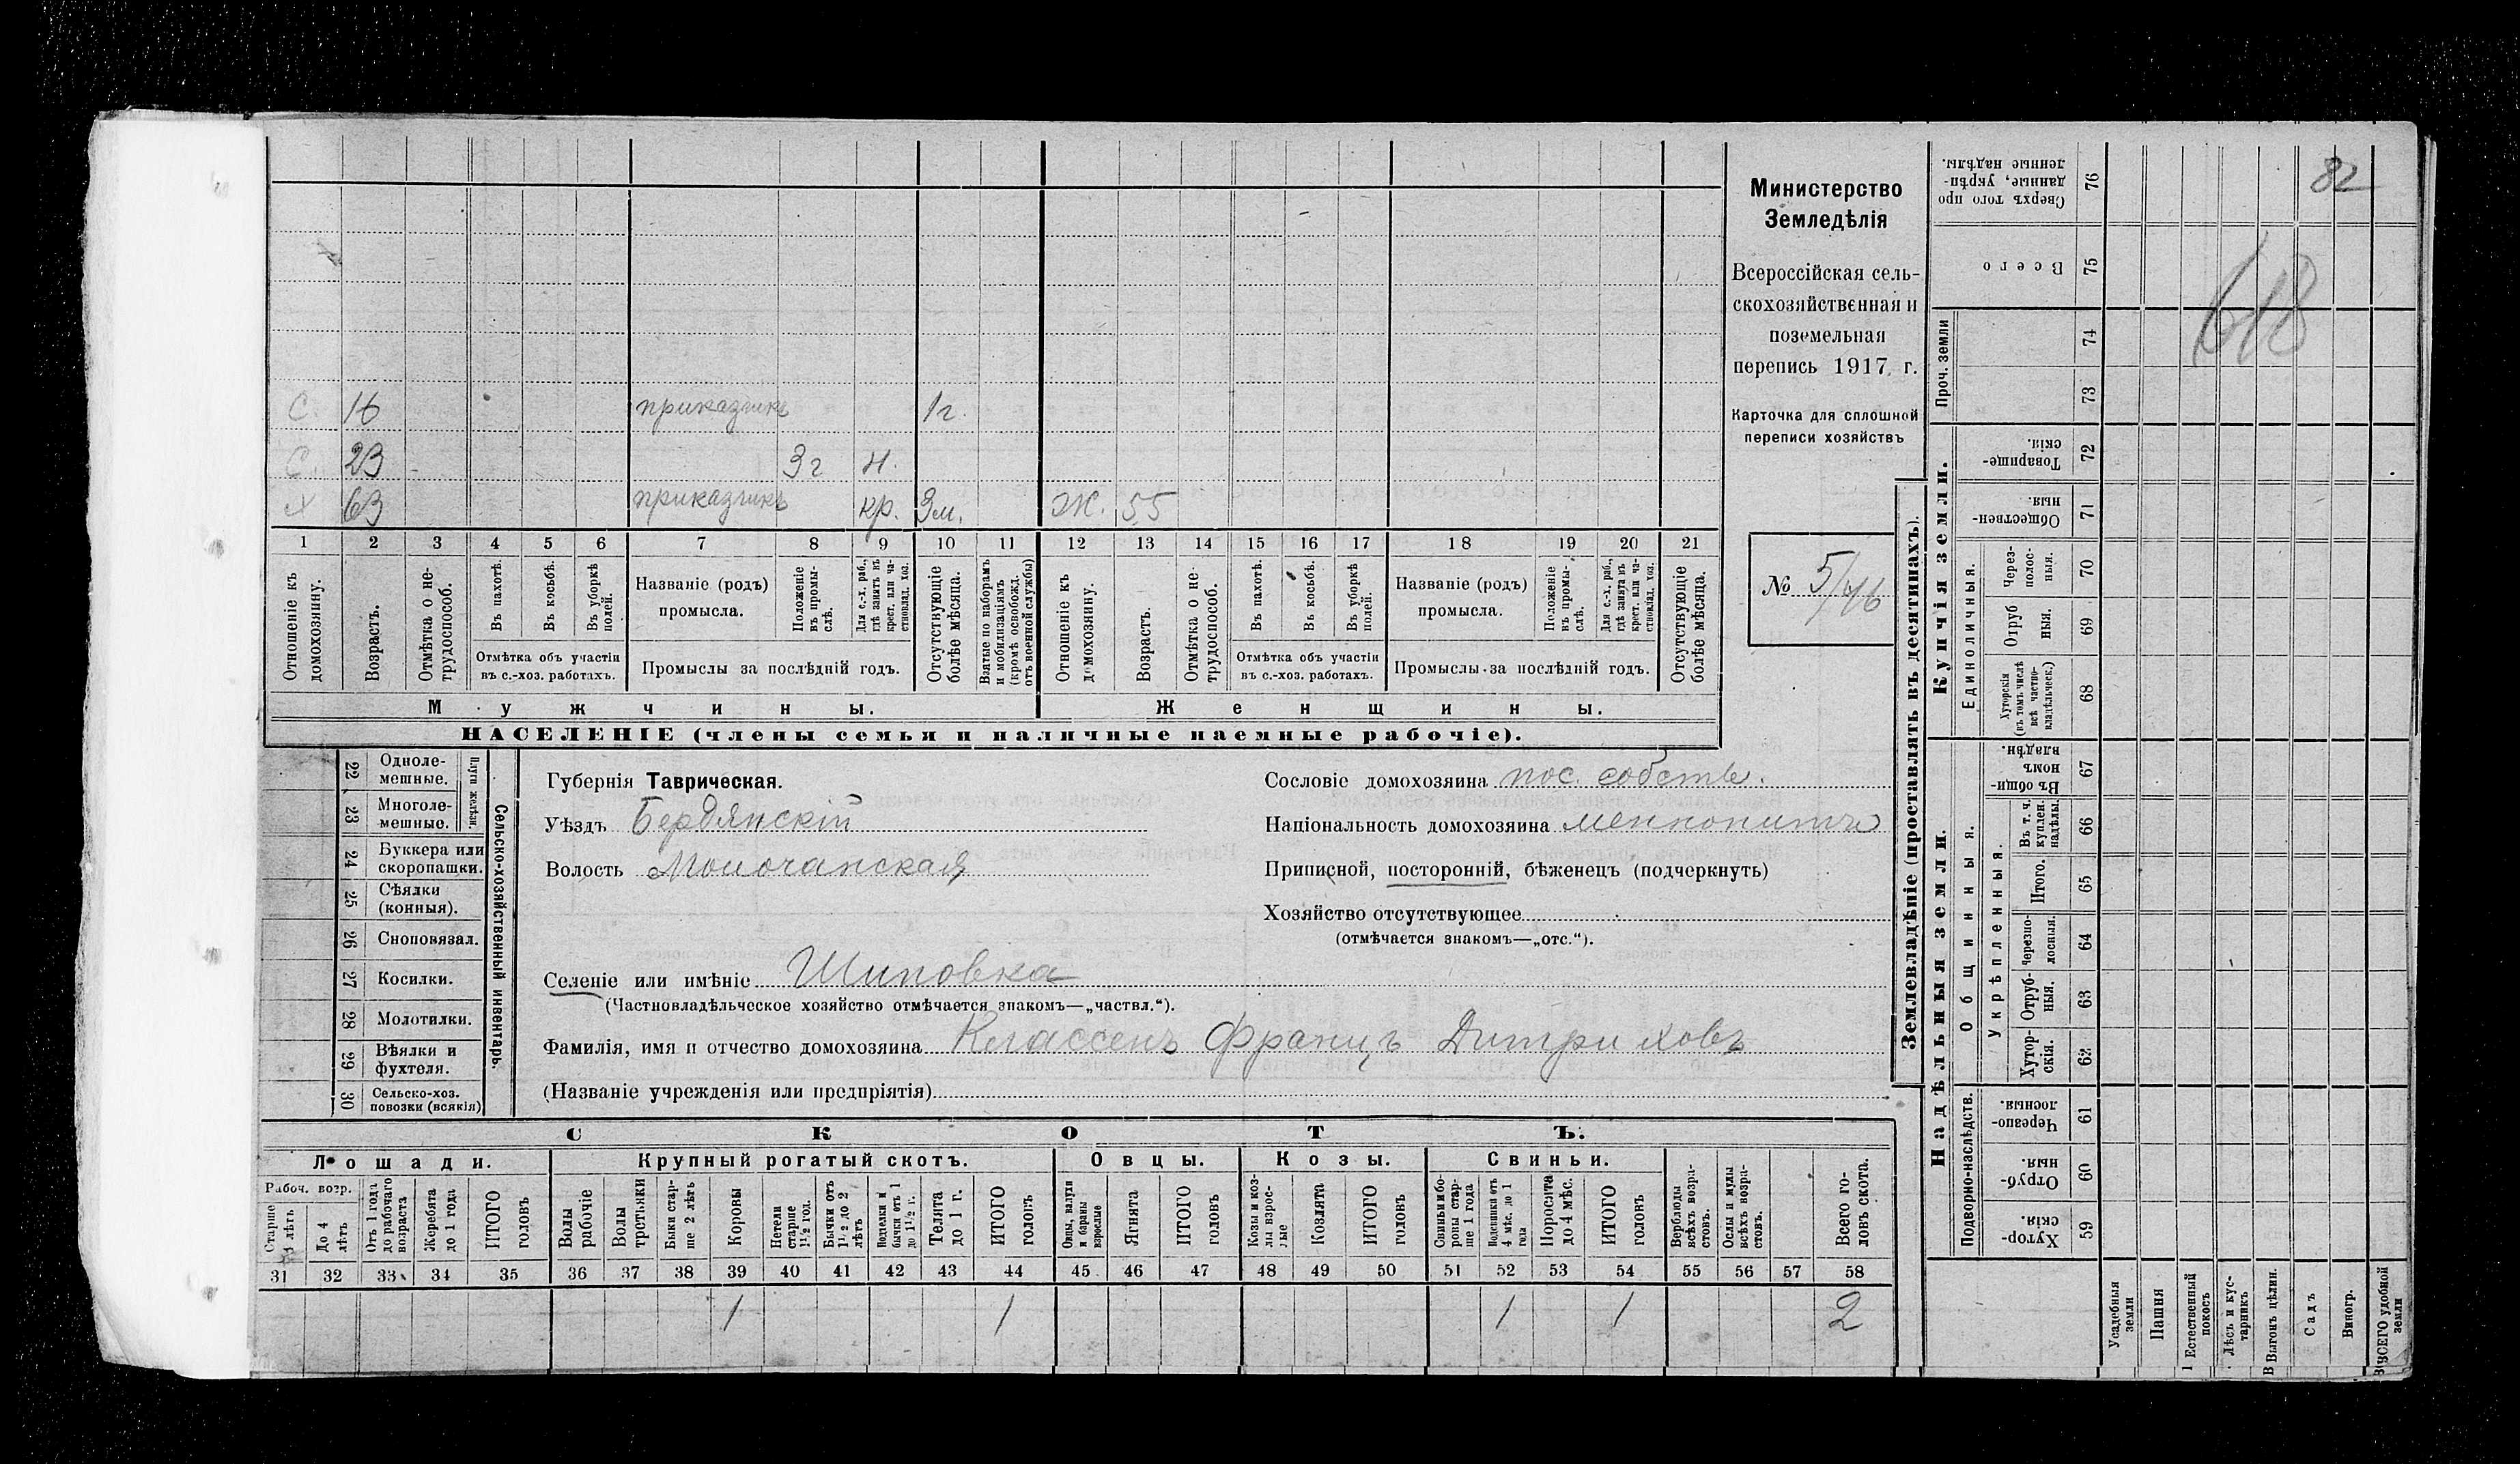 82
618
Министерство
Земледѣлія
Всероссійская сель-
скохозяйственная и
поземельная
перепись 1917 г.
Карточка для сплошной
переписи хозяйствъ
№ 5/46
С. 16 приказчикъ 1г.
С. 23 3г н.
х 63 приказчикъ кр. 3м. Ж. 55
1 2 3 4 5 6 7 8 9 10 11 12 13 14 15 16 17 18 19 20 21
Отношеніе къ домохозяину.
Возрастъ.
Отмѣтка о не-трудоспособ.
Въ пахотѣ.
Въ косьбѣ.
Въ уборкѣ полей.
Отмѣтка объ участіи
въ с.-хоз. работахъ.
Названіе (родъ)
промысла.
Положеніе въ промы-слѣ.
Для с.-х. раб., гдѣ занятъ въ крест. или ча-стновлад. хоз.
Промыслы за послѣдній годъ.
Отсутствующіе болѣе мѣсяца.
Взятые по наборамъ и мобилизаціямъ (кромѣ освобожд. отъ военной службы)
Отношеніе къ домохозяину.
Возрастъ.
Отмѣтка о не-трудоспособ.
Въ пахотѣ.
Въ косьбѣ.
Въ уборкѣ полей.
Отмѣтка объ участіи
въ с.-хоз. работахъ.
Названіе (родъ)
промысла.
Положеніе въ промы-слѣ.
Для с.-х. раб., гдѣ занята въ крест. или ча-стновлад. хоз.
Промыслы за послѣдній годъ.
Отсутствующіе болѣе мѣсяца.
Мужчины.
Женщины.
НАСЕЛЕНІЕ (члены семьи и наличные наемные рабочіе).
22 Одноле-мешные.
23 Многоле-мешные.
Плуги желѣзн.
24 Буккера или скоропашки.
25 Сѣялки (конныя).
26 Сноповязал.
27 Косилки.
28 Молотилки.
29 Вѣялки и фухтеля.
30 Сельско-хоз. повозки (всякія)
Сельско-хозяйственный инвентарь.
Губернія Таврическая.
Уѣздъ Бердянскій
Волость Молочанская
Селеніе или имѣніе Шиповка
(Частновладѣльческое хозяйство отмѣчается знакомъ—„частвл.“).
Фамилія, имя и отчество домохозяина Классенъ Францъ Дитриховъ
(Названіе учрежденія или предпріятія)
Сословіе домохозяина пос. собств.
Національность домохозяина меннонитъ
Приписной, посторонній, бѣженецъ (подчеркнуть)
Хозяйство отсутствующее
(отмѣчается знакомъ—„отс.“).
СКОТЪ.
Лошади.
Крупный рогатый скотъ.
Овцы.
Козы.
Свиньи.
Рабоч. возр.
Старше 4 лѣтъ
До 4 лѣтъ
Отъ 1 года до рабочаго возраста
Жеребята до 1 года
ИТОГО головъ
Волы рабочіе
Волы третьяки
Быки стар-ше 2 лѣтъ
Коровы
Нетели старше 1½ год.
Бычки отъ 1½ до 2 лѣтъ
Подтелки и бычки отъ 1 до 1½ г.
Телята до 1 г.
ИТОГО головъ
Овцы, валухи и бараны взрослые
Ягнята
ИТОГО головъ
Козы и коз-лы взрос-лые
Козлята
ИТОГО головъ
Свиньи и бо-ровы стар-ше 1 года
Подсвинки отъ 4 мѣс. до 1 года
Поросята до 4 мѣс.
ИТОГО головъ
Верблюды всѣхъ возра-стовъ.
Ослы и мулы всѣхъ возра-стовъ.
Всего го-ловъ скота.
31 32 33 34 35 36 37 38 39 40 41 42 43 44 45 46 47 48 49 50 51 52 53 54 55 56 57 58
1 1 1 1 2
Землевладѣніе (проставлять въ десятинахъ).
Купчія земли.
Надѣльныя земли.
Сверхъ того про данные, укрѣп-ленные надѣлы. 76
Всего 75
Проч. земли
74
73
Товарище-скія. 72
Обществен-ныя. 71
Единоличныя.
Через-полос-ныя. 70
Отруб ныя. 69
Хуторскія (въ томъ числѣ всѣ частно-владѣльческ.) 68
Общинныя.
Въ общи-номъ владѣн. 67
Укрѣпленныя.
Въ т. ч. куплен. надѣлы. 66
Итого. 65
Черезпо-лосныя. 64
Отруб-ныя. 63
Хутор-скія. 62
Подворно-наслѣдств.
Черезпо-лосныя. 61
Отруб-ныя. 60
Хутор-скія. 59
Усадебныя земли
Пашня
Естественный покосъ
Лѣсъ и кус-тарникъ
Выгонъ цѣлин.
Садъ
Виногр.
ВСЕГО удобной земли